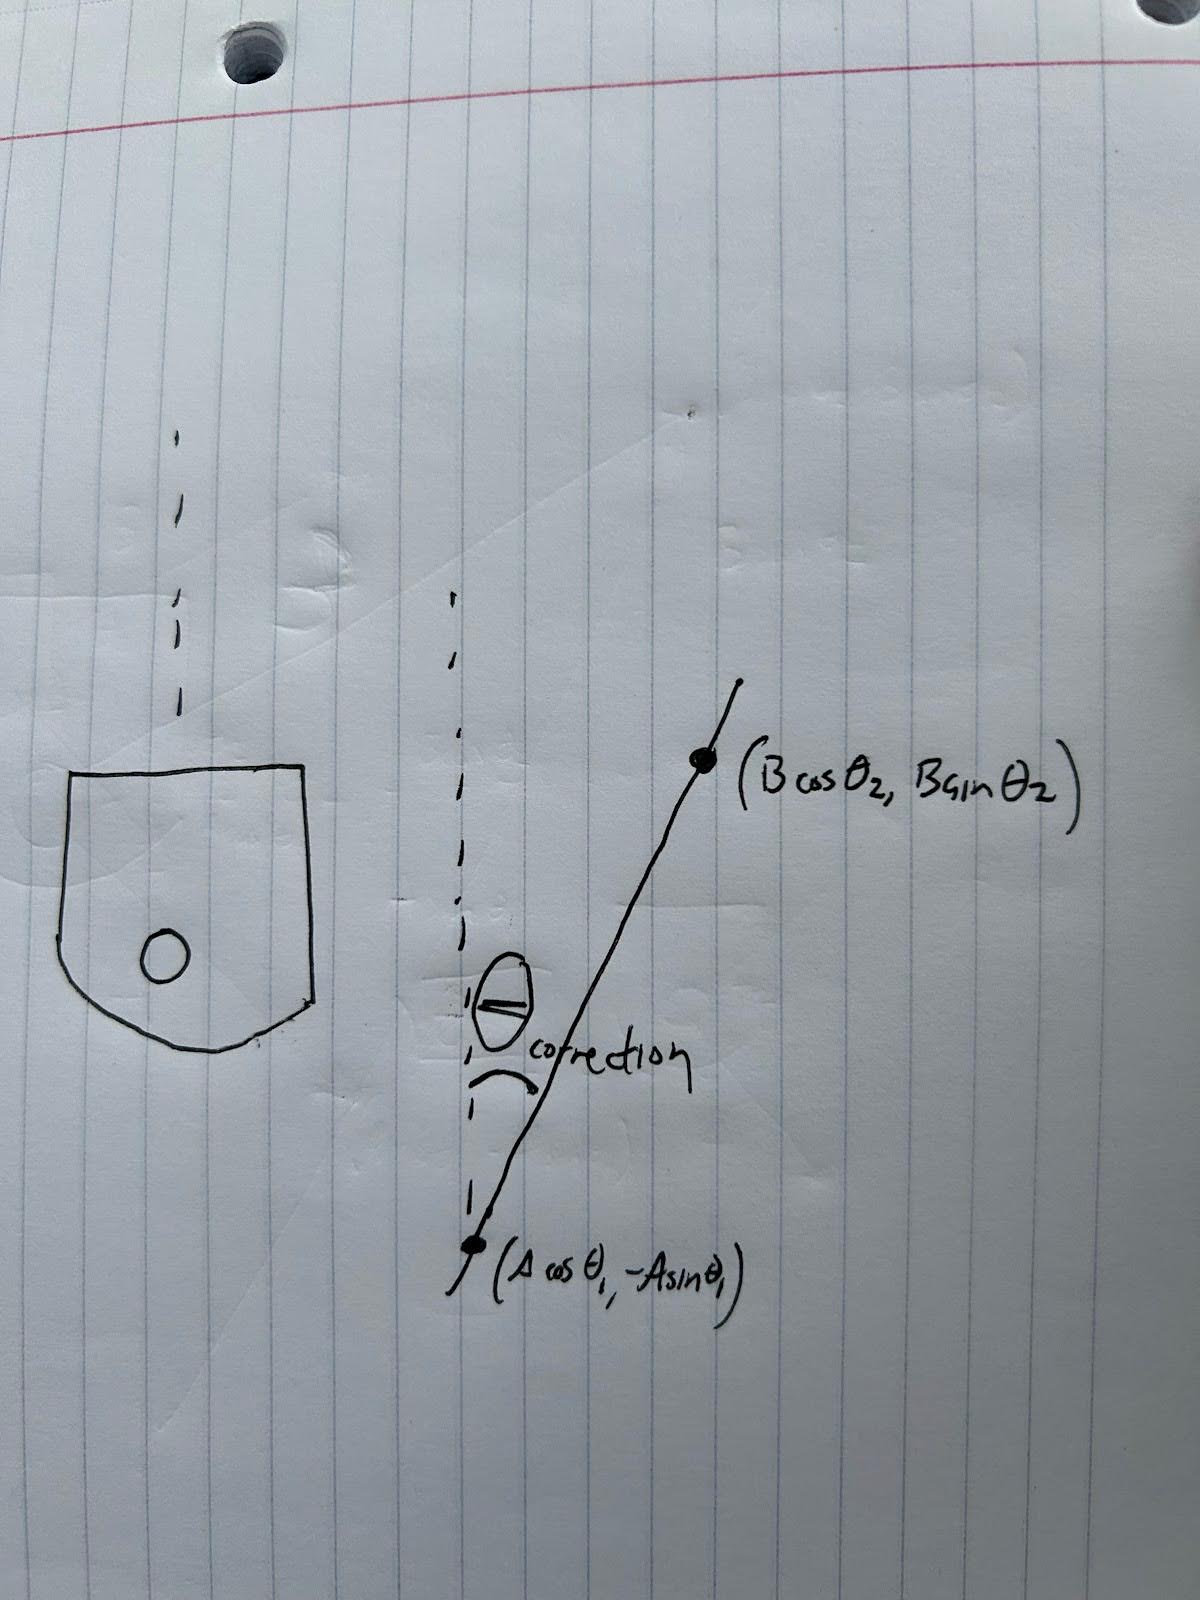 (B cos θ₂, B sin θ₂)
θ correction
(A cos θ₁, -A sin θ₁)